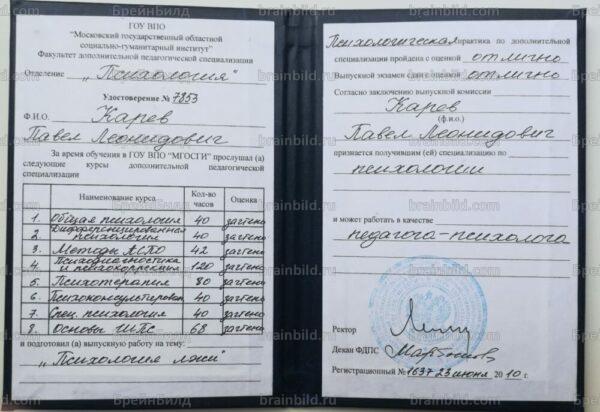 ГОУ ВПО
"Московский государственный областной
социально-гуманитарный институт"
Факультет дополнительной педагогической специализации
Отделение „Психология"
Удостоверение № 7853
Ф.И.О. Карев
Павел Леонидович
За время обучения в ГОУ ВПО "МГОСГИ" прослушал (а)
следующие курсы дополнительной педагогической
специализации
Наименование курса Кол-во часов Оценка
1. Общая психология 40 зачтено
2. Дифференцированная психология 40 зачтено
3. Методы АСПО 42 зачтено
4. Психодиагностика и психокоррекция 120 зачтено
5. Психотерапия 80 зачтено
6. Психоконсультирован 40 зачтено
7. Спец. психология 40 зачтено
8. Основы ШПС 68 зачтено
и подготовил (а) выпускную работу на тему:
„Психология лжи"
Психологическая практика по дополнительной
специализации пройдена с оценкой отлично
Выпускной экзамен сдан с оценкой отлично
Согласно заключению выпускной комиссии
Карев
(ф.и.о.)
Павел Леонидович
признается получившим (ей) специализацию по
психологии
и может работать в качестве
педагога-психолога
Ректор
Декан ФДПС
Регистрационный № 1637 23 июня 2010 г.
БрейнБилд brainbild.ru brainbild.com